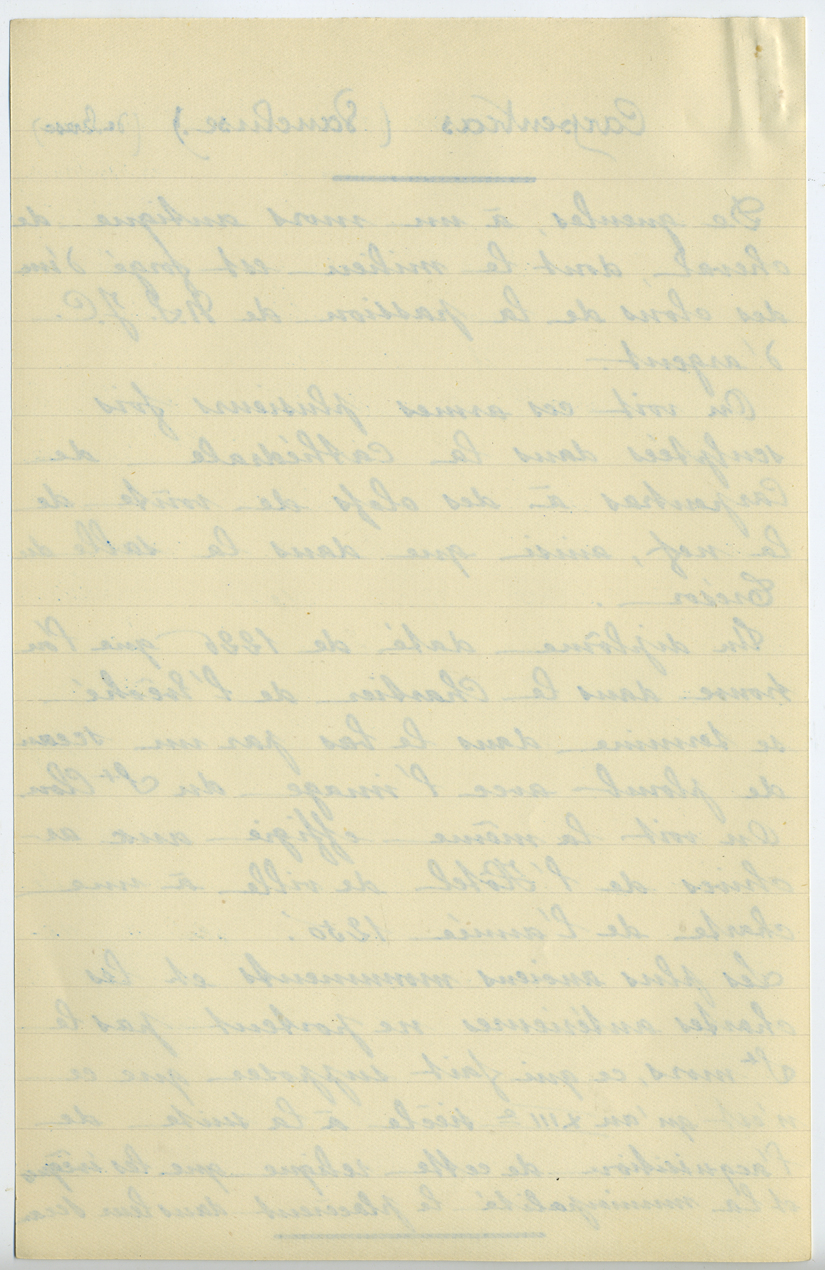 Carpentras (Vaucluse)
De gueules, à un mors antique de
cheval, dont le milieu est forgé d'un
des clous de la passion de N.S. J.C.
d'argent.
On voit ces armes plusieurs fois
sculptées dans la Cathédrale de
Carpentras à des clefs de voûte de
la nef, ainsi que dans la salle du
Trésor.
Un diplôme daté de 1226 que l'on
trouve dans le Chartier de l'Evêché
se termine dans le bas par un sceau
de plomb avec l'image du St Clou
On voit la même effigie aux ar
chives de l'Hôtel de ville à une
charte de l'année 1250.
Les plus anciens monuments et les
chartes antérieures ne portent pas le
St mors, ce qui fait supposer que ce
n'est qu'au XIIIe siècle, à la suite de
l'acquisition de cette relique que les
et la municipalité le placèrent dans leur